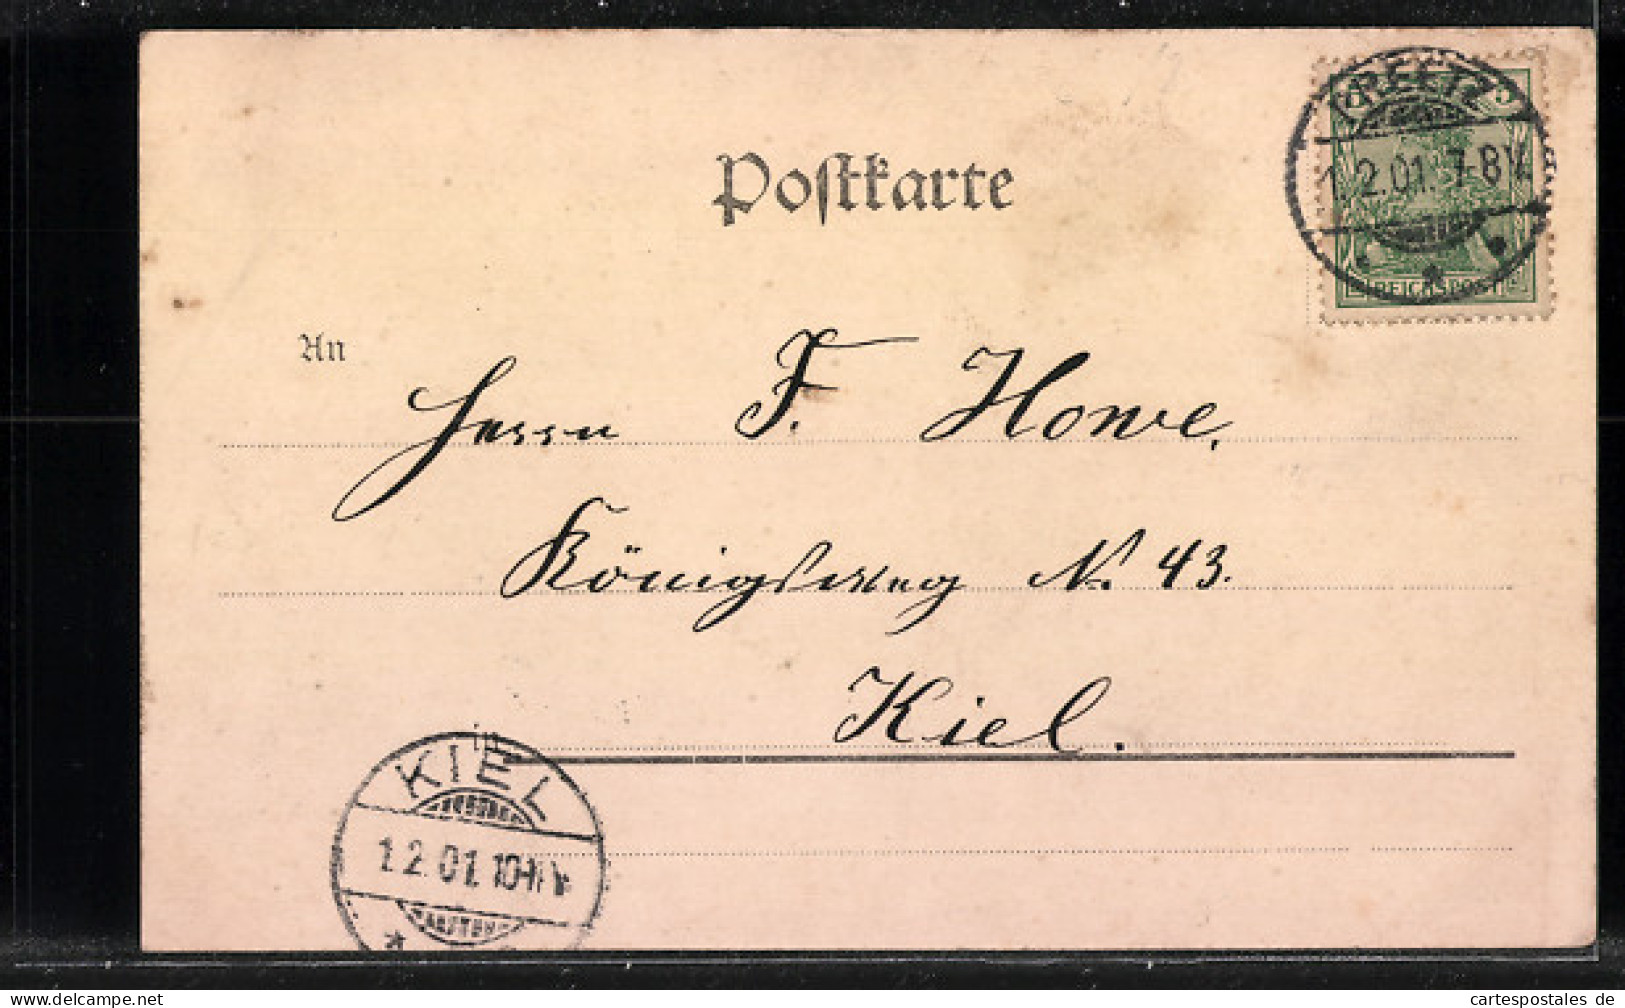 PREETZ
1.2.01. 7-8V.
5
REICHSPOST
Postkarte
An
Herrn F. Howe.
Königsweg N. 43.
Kiel.
KIEL
1.2.01. 10-11V
© www.delcampe.net
cartespostales de